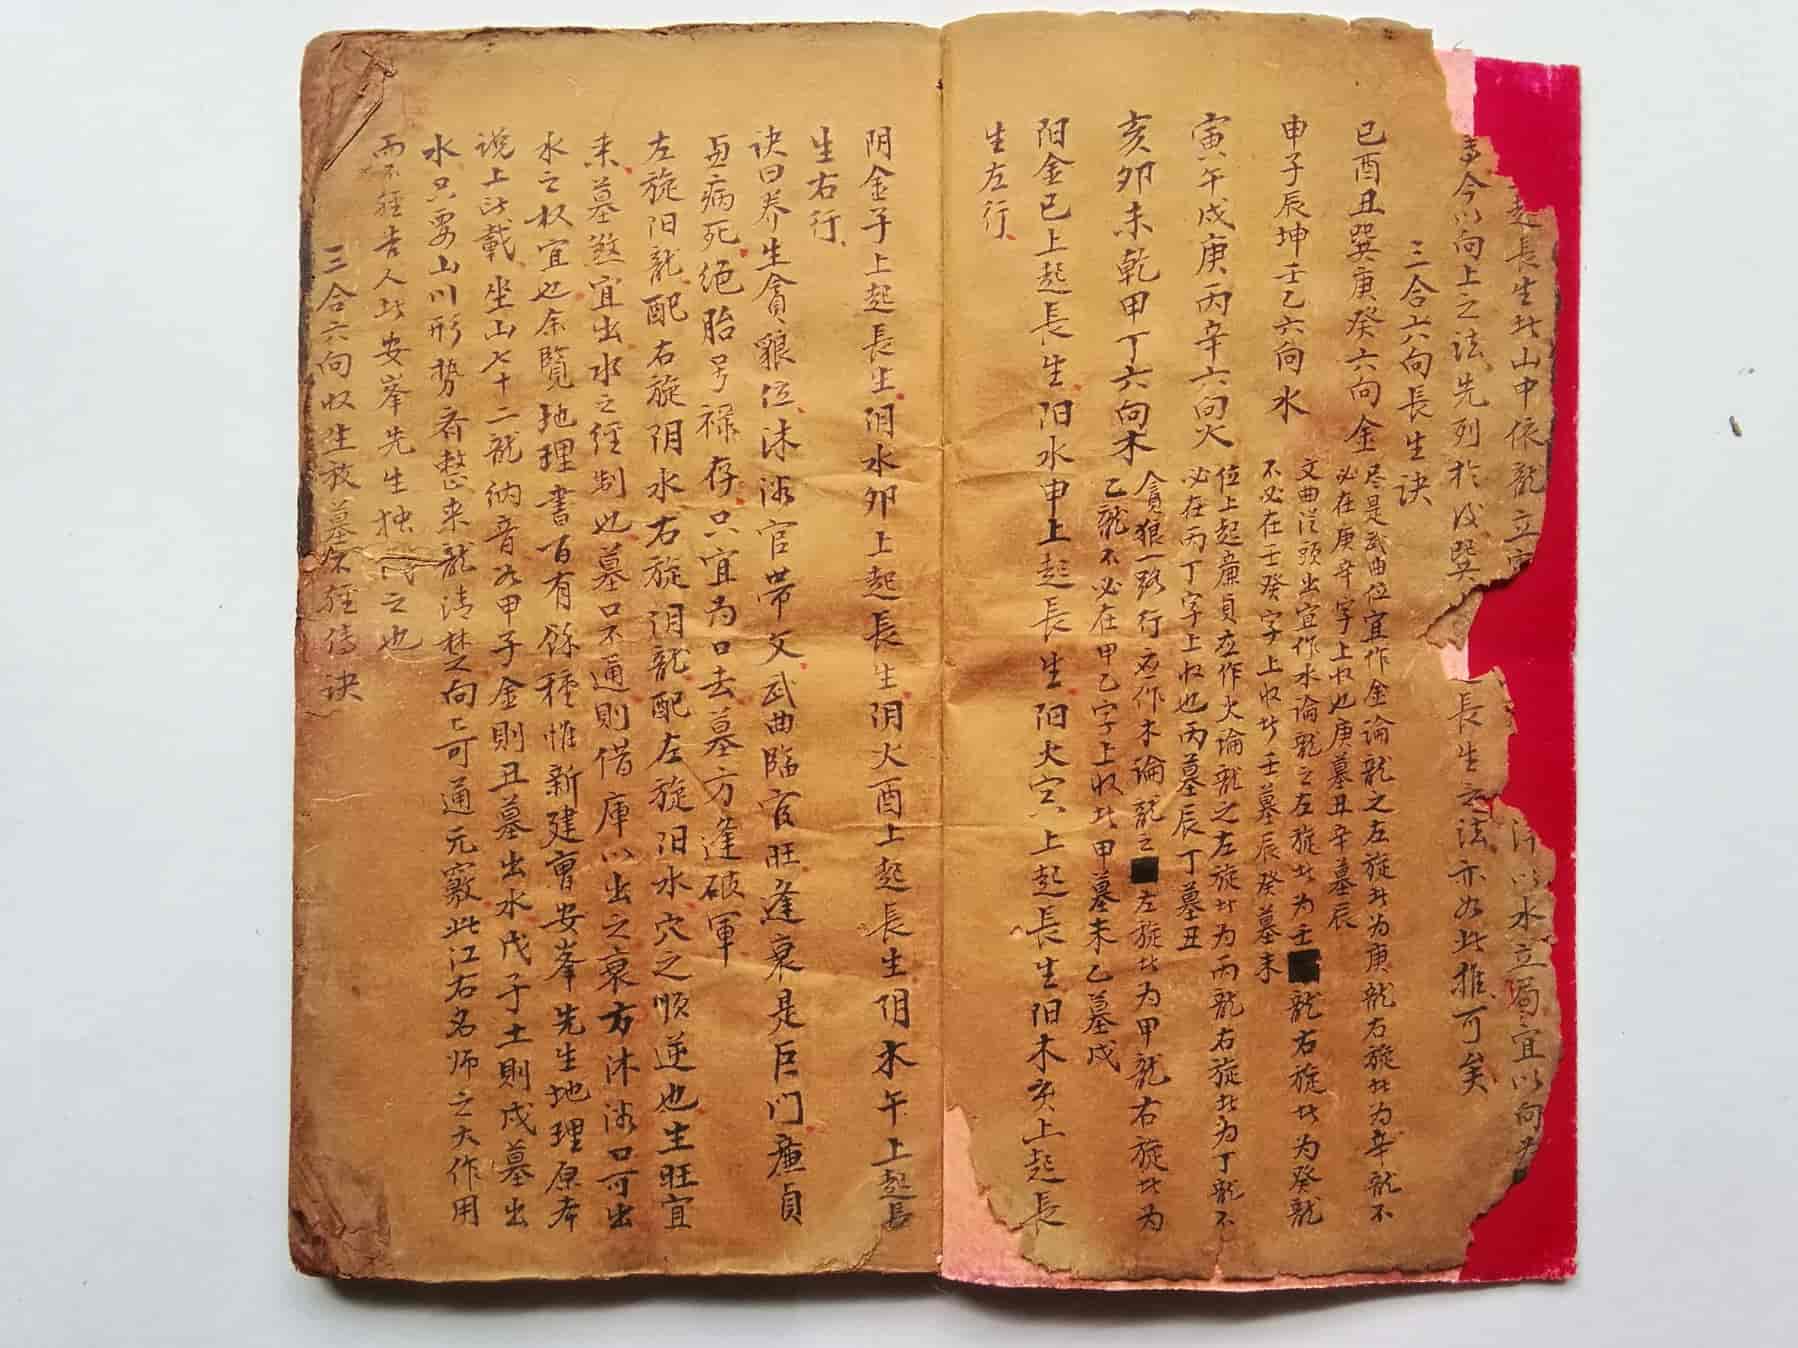 起長生此山中依龍立
以水立局宜以向
今以向上之法先列於後巽
長生之法亦如此推可矣
三合六向長生訣
巳酉丑巽庚癸六向金
尽是武曲位宜作金論龍之左旋此为庚龍右旋此为辛龍不
必在庚辛字上收也庚墓丑辛墓辰
申子辰坤壬乙六向水
文曲從頭出宜作水論龍之左旋此为壬龍右旋此为癸龍
不必在壬癸字上收此壬墓辰癸墓未
寅午戌庚丙辛六向火
位上起廉貞应作火論龍之左旋此为丙龍右旋此为丁龍不
必在丙丁字上收也丙墓辰丁墓丑
亥卯未乾甲丁六向木
貪狼一路行应作木論龍之左旋此为甲龍右旋此为
乙龍不必在甲乙字上收此甲墓未乙墓戌
阳金巳上起長生阳水申上起長生阳火寅上起長生阳木亥上起長
生左行
阴金子上起長生阴水卯上起長生阴火酉上起長生阴木午上起長
生右行
诀曰养生貪狼位沐浴官带文武曲臨官旺逢衰是巨门廉貞
兼病死绝胎号禄存只宜为口去墓方逢破軍
左旋阳龍配右旋阴水右旋阴龍配左旋阳水穴之順逆也生旺宜
来墓煞宜出水之經制也墓口不通則借庫以出之衰方沐浴口可出
水之权宜也余覽地理書百有餘種惟新建曹安峯先生地理原本
说上所載坐山七十二龍納音如甲子金則丑墓出水戊子土則戌墓出
水只要山川形势齐整来龍清楚向上可通元竅此江右名师之大作用
而不輕告人此安峯先生独得之也
三合六向收生放墓不輕傳诀